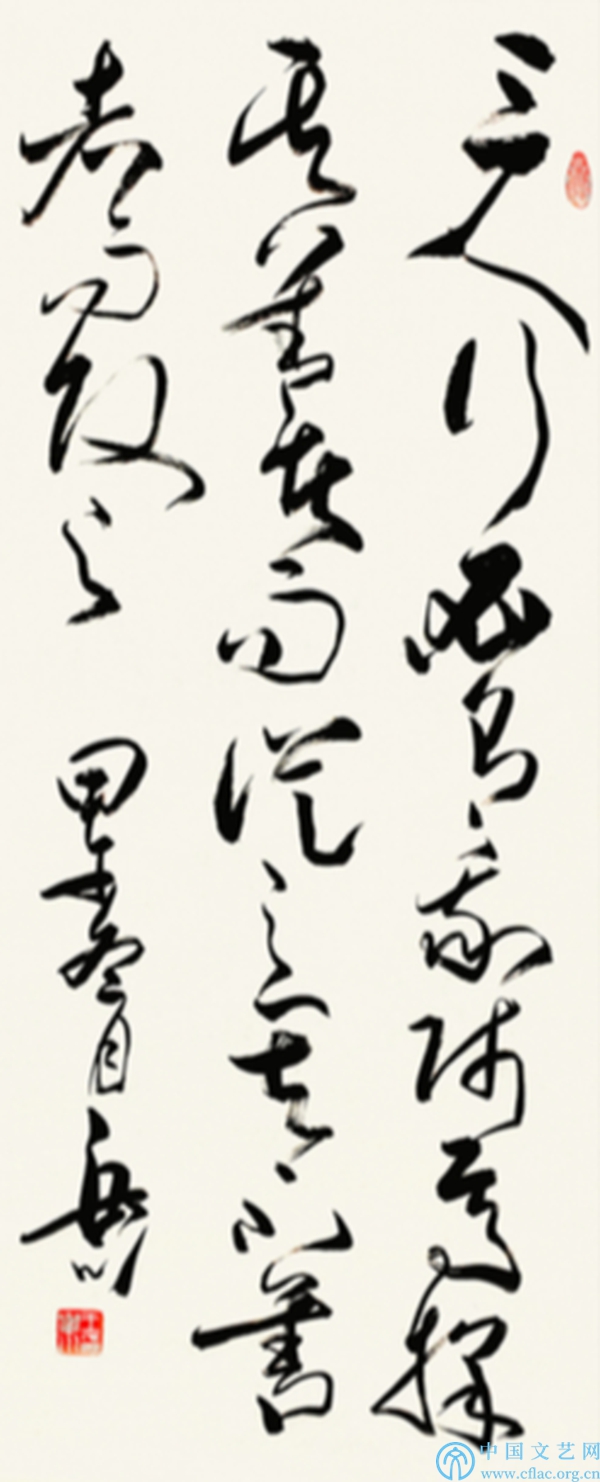 三人行必有我師焉擇
其善者而從之其不善
者而改之 甲午冬月
中国文艺网
www.cflac.org.cn